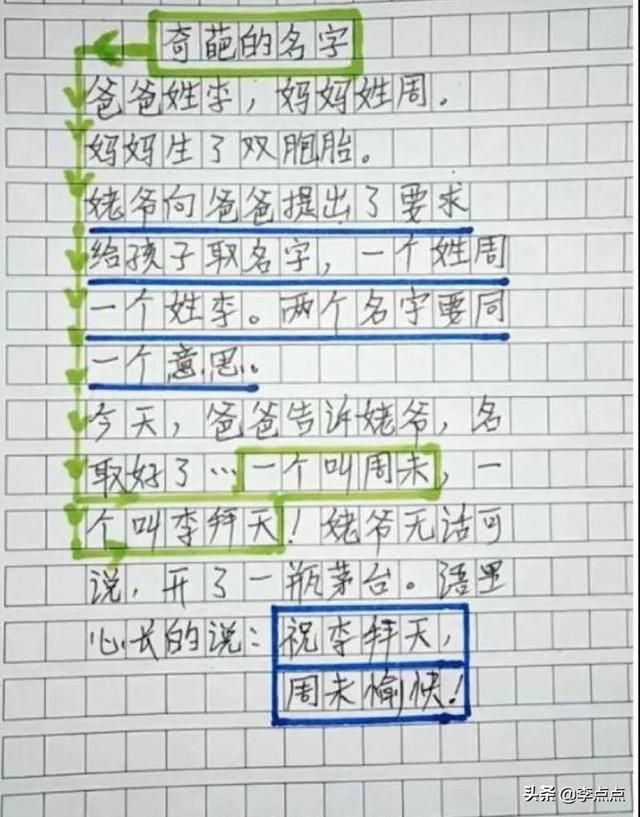 奇葩的名字
爸爸姓李，妈妈姓周．
妈妈生了双胞胎。
姥爷向爸爸提出了要求
给孩子取名字，一个姓周
一个姓李。两个名字要同
一个意思。
今天，爸爸告诉姥爷，名
取好了…一个叫周未，一
个叫李拜天！姥爷无话可
说，开了一瓶茅台。语里
心长的说：祝李拜天，
周未愉快！
头条 @李点点